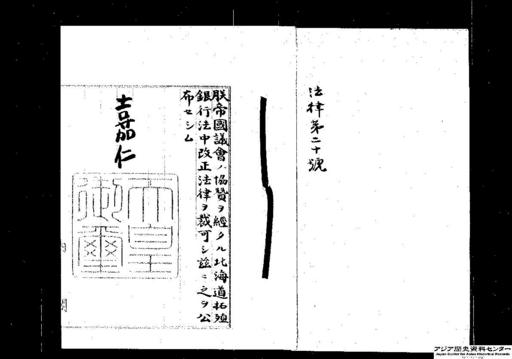 法律第二十號
朕帝國議會ノ協贊ヲ經タル北海道拓殖
銀行法中改正法律ヲ裁可シ茲ニ之ヲ公
布セシム
嘉仁
天皇
御璽
内
閣
アジア歴史資料センター
Japan Center for Asian Historical Records